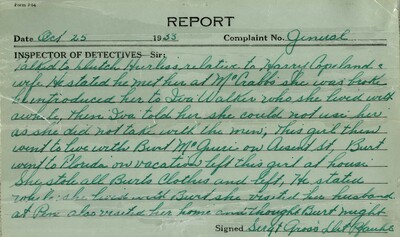 Form #4a
REPORT
Date Oct 25 1933 Complaint No. General
INSPECTOR OF DETECTIVES—Sir:
Talked to Dutch related to Harry Copeland &
wife. He stated he met her at McCrabbs she was broke
introduced her to Iva Walker who she lived with
awhile, then Iva told her she could not use her
as she did not take with the men, This girl then
went to live with Burt on St, Burt
went to Florida on vacation left this girl at house
She stole all Burts Clothes and left, He stated
while she lived with Burt she visited her husband
at Pen also visited her home and thought Burt might
Signed Sergt Gross Det